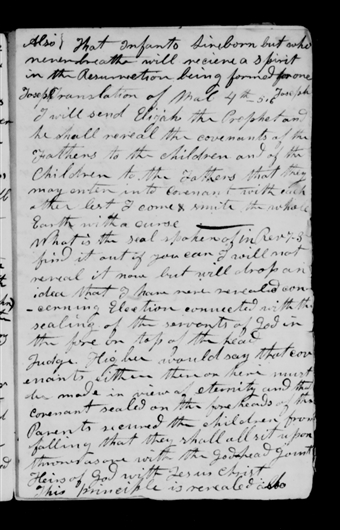 Also! That Infants Sireborn but who
never breathe will recieve a spirit
in the Resurrection being formed for one
Josephs Translation of Mal 4th–5,6 Joseph
I will send Elijah the Prophet and
he shall reveal the covenants of the
Fathers to the children and of the
Children to the Fathers that they
may enter into Covenant with each
other lest I come & smite the whole
Earth with a curse
What is the seal spoken of in Rev 7–3
find it out if you can I will not
reveal it now but will drop an
idea that I have never revealed con
-cerning Election connected with the
sealing of the servants of God in
the fore or top of the head
Judge Higbee would say that cov
enants either there or here must
be made in view of eternity and the
Covenant sealed on the foreheads of the
Parents secured the children from
falling that they shall all sit upon
thrones as one with the Godhead joint
Heirs of God with Jesus Christ
This principle is revealed also